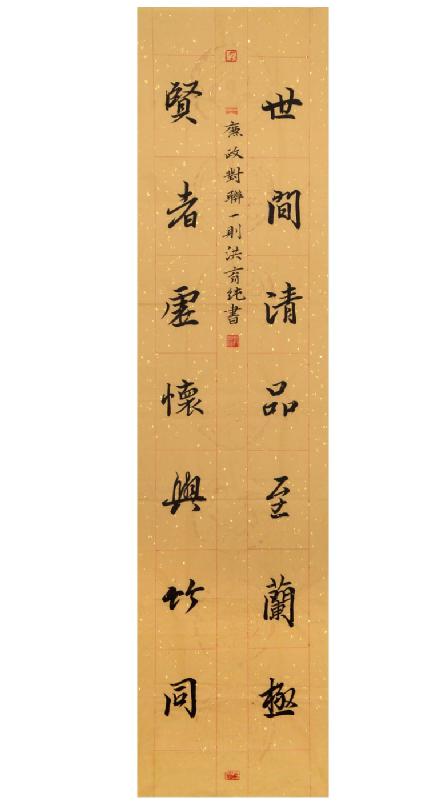 世間清品至蘭極
賢者虛懷與竹同
廉政對聯一則洪育纯書